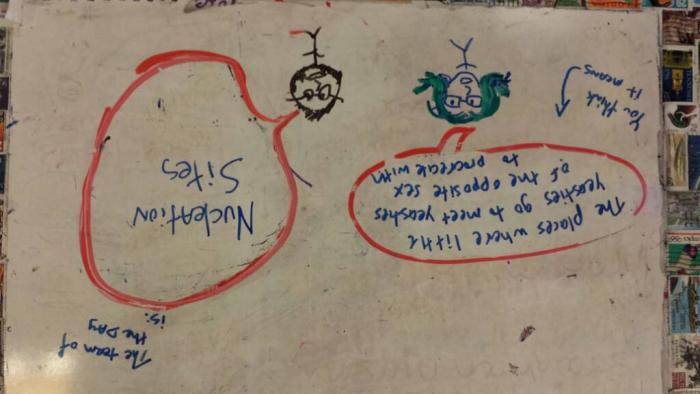 The team of
the DAY
is:
NucleATION
Sites
You think
it means
The places where little
yeasties go to meet yeasties
of the opposite sex
to procreate with